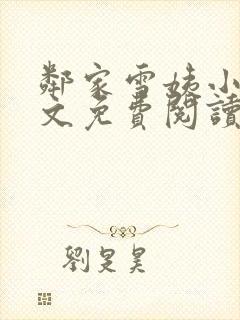 鄰家雪姨小
文免費閱讀
劉是昊